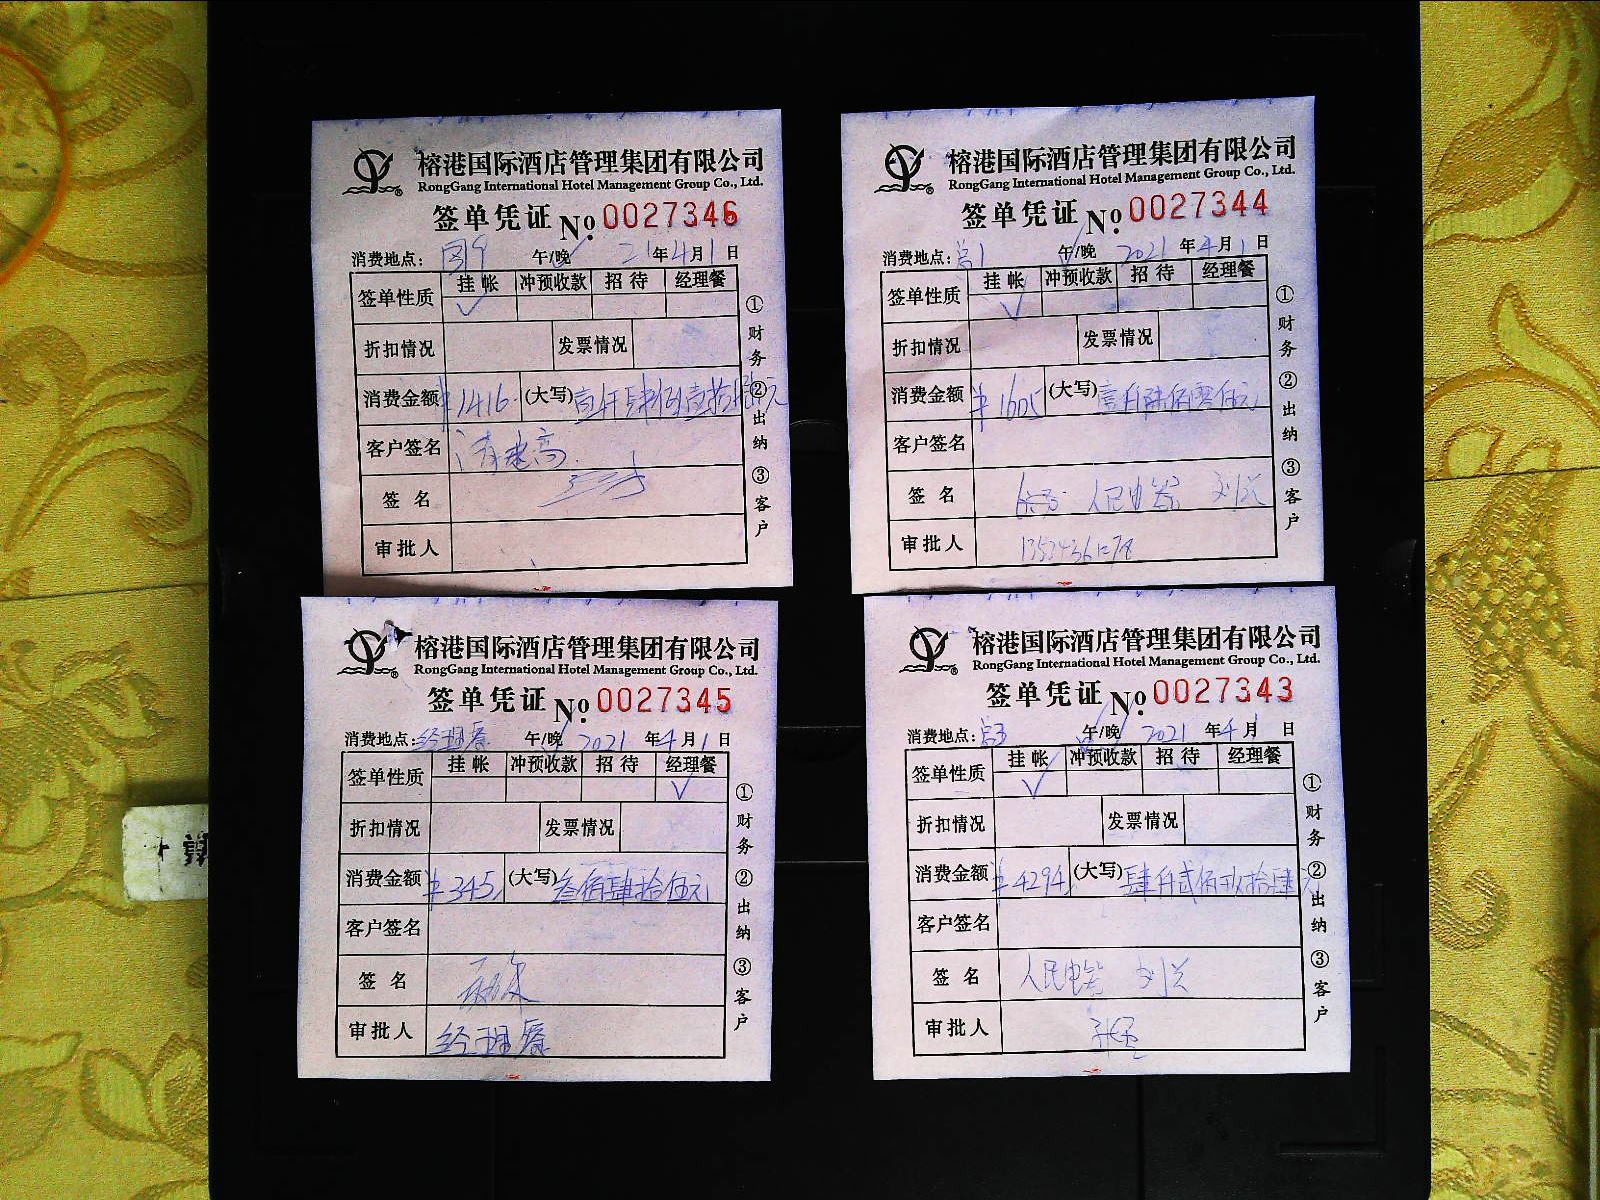 榕港国际酒店管理集团有限公司
RongGang International Hotel Management Group Co., Ltd.
签单凭证 No. 0027346
消费地点: 午/晚 21年4月1日
签单性质 挂帐 冲预收款 招待 经理餐
✓
折扣情况 发票情况
消费金额 ¥1416 (大写) 壹仟肆佰壹拾陆元
客户签名
签名
审批人
①财务 ②出纳 ③客户
榕港国际酒店管理集团有限公司
RongGang International Hotel Management Group Co., Ltd.
签单凭证 No. 0027344
消费地点: 午/晚 2021年4月1日
签单性质 挂帐 冲预收款 招待 经理餐
✓
折扣情况 发票情况
消费金额 ¥1605 (大写) 壹仟陆佰零伍元
客户签名
签名 人民电器
审批人
①财务 ②出纳 ③客户
榕港国际酒店管理集团有限公司
RongGang International Hotel Management Group Co., Ltd.
签单凭证 No. 0027345
消费地点: 经理餐 午/晚 2021年4月1日
签单性质 挂帐 冲预收款 招待 经理餐
✓
折扣情况 发票情况
消费金额 ¥345 (大写) 叁佰肆拾伍元
客户签名
签名
审批人 经理餐
①财务 ②出纳 ③客户
榕港国际酒店管理集团有限公司
RongGang International Hotel Management Group Co., Ltd.
签单凭证 No. 0027343
消费地点: 午/晚 2021年4月1日
签单性质 挂帐 冲预收款 招待 经理餐
✓
折扣情况 发票情况
消费金额 ¥4294 (大写) 肆仟贰佰玖拾肆元
客户签名
签名 人民电器
审批人
①财务 ②出纳 ③客户